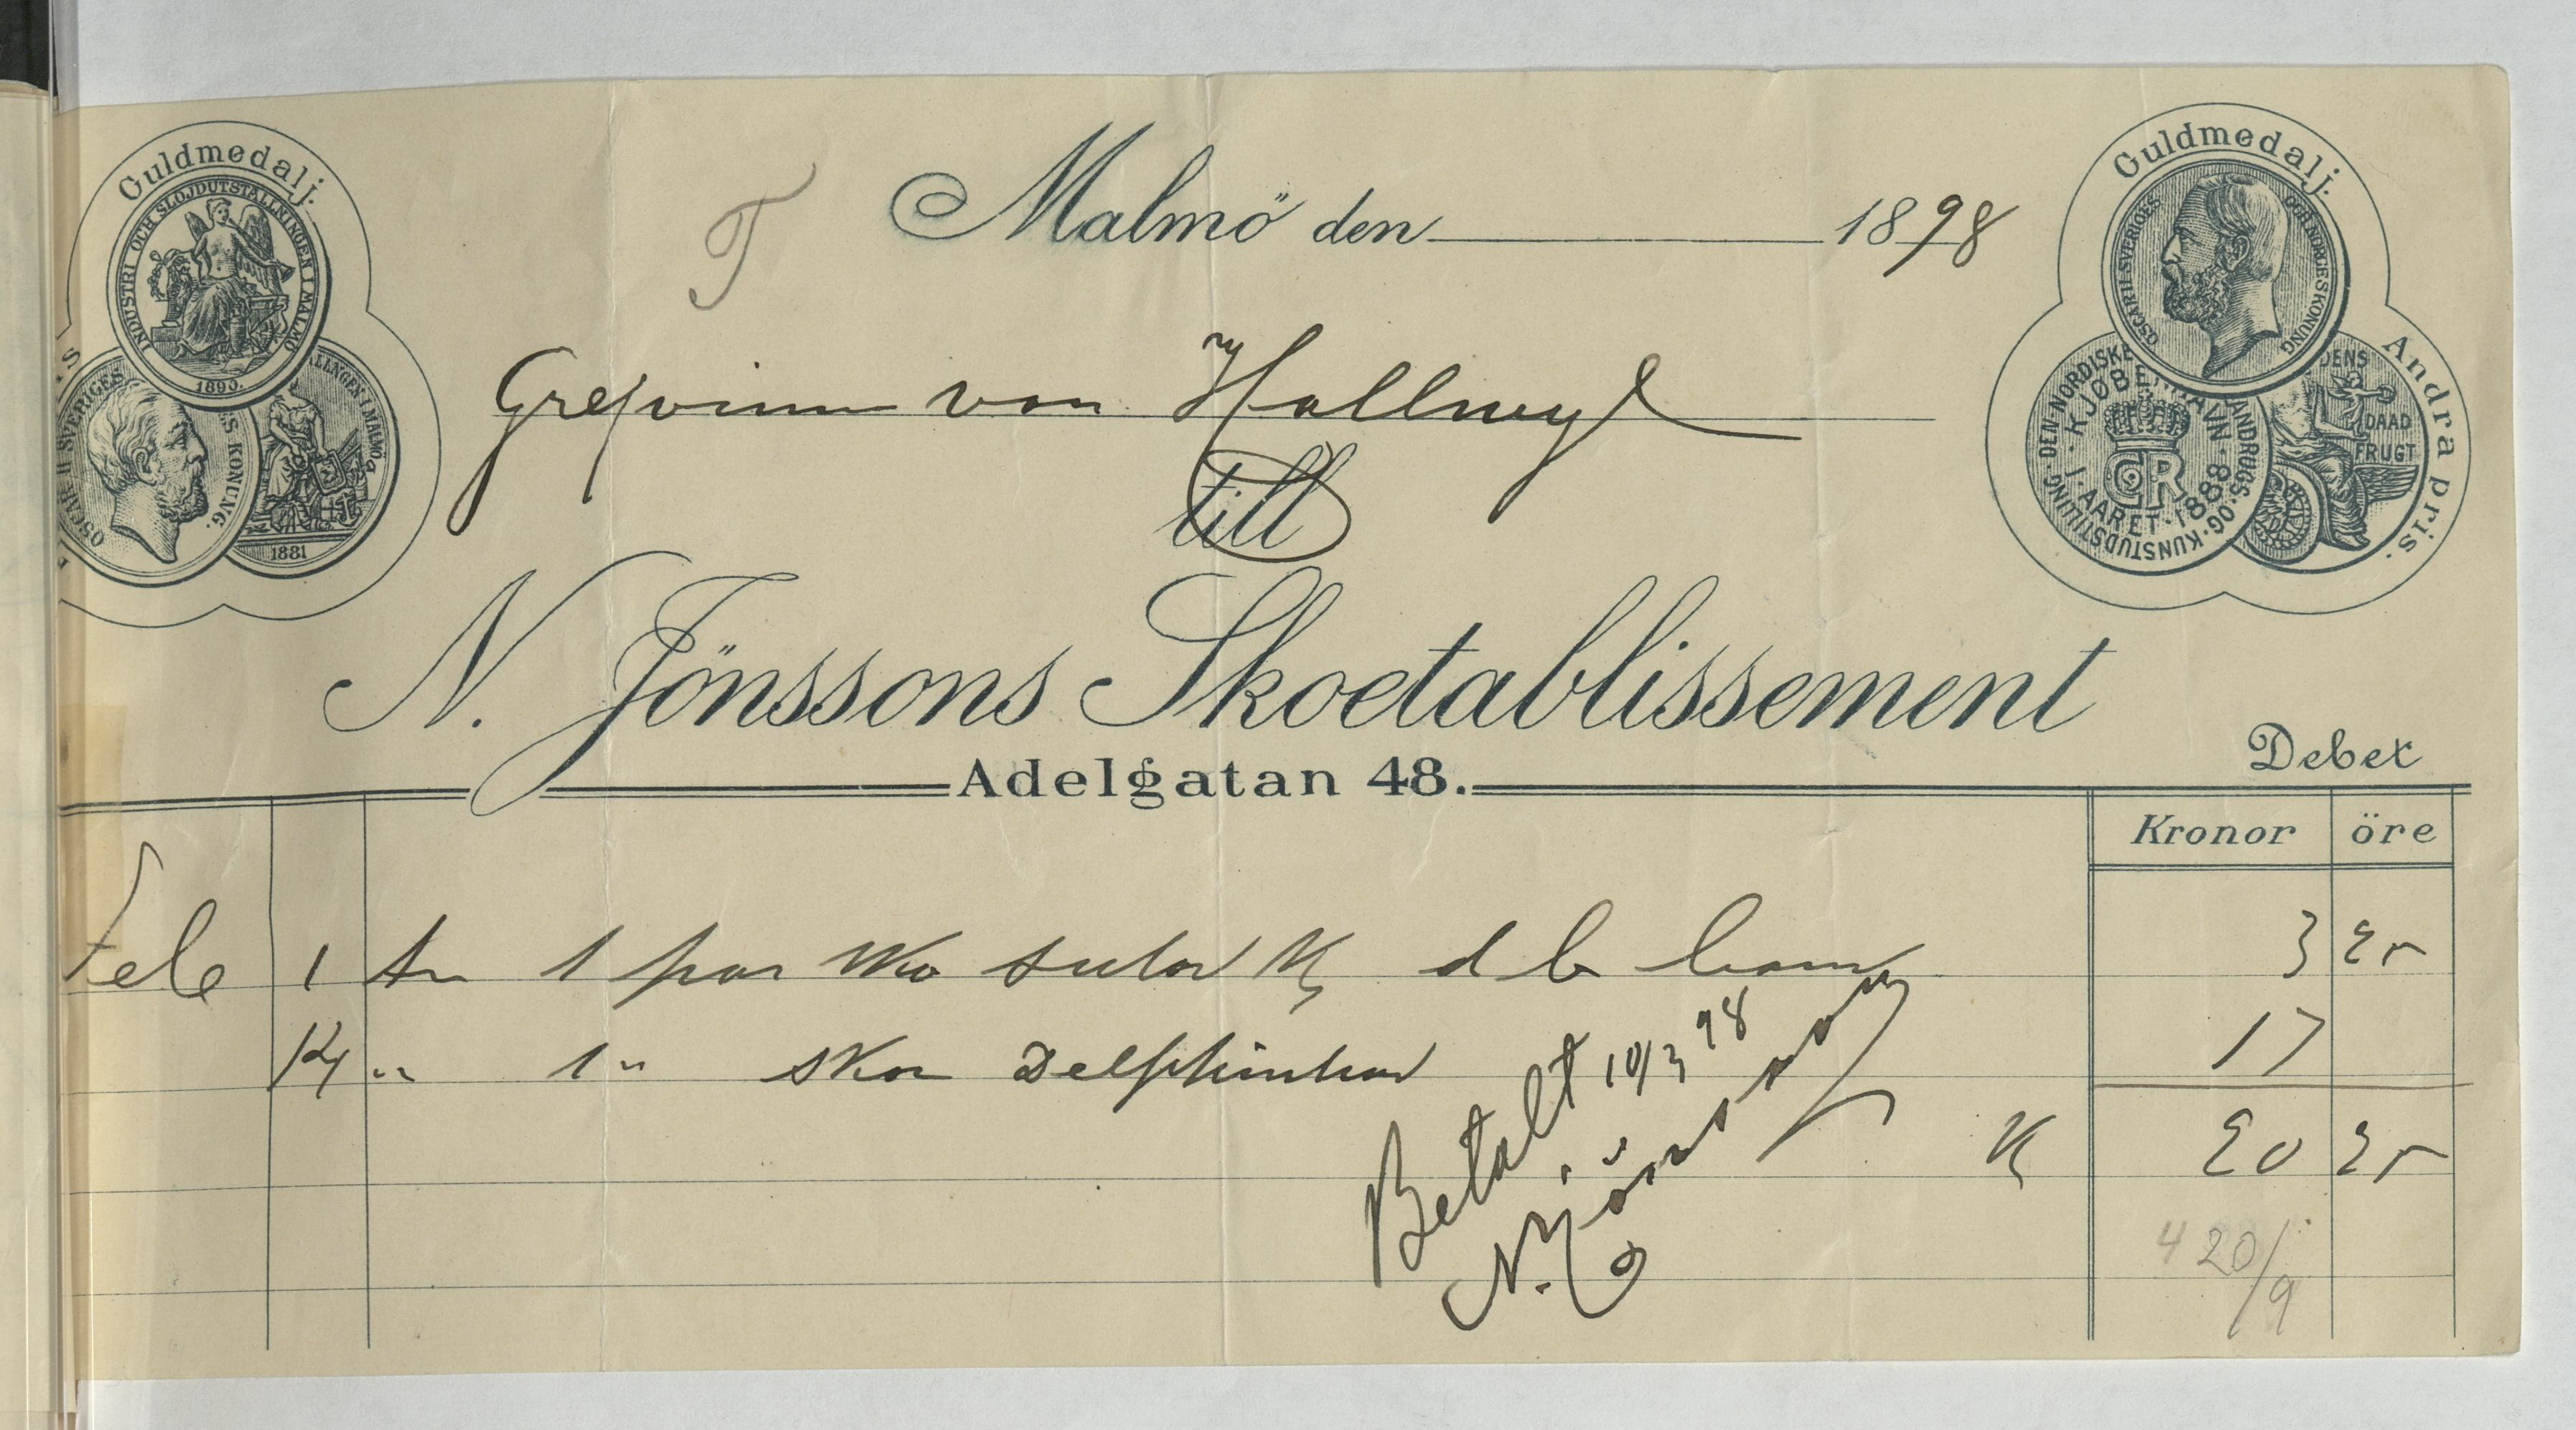 Guldmedalj.
INDUSTRI OCH SLÖJDUTSTÄLLNINGEN I MALMÖ
1890.
OSCAR II SVERIGES
S KONUNG.
ÄLLNGEN I MALMÖ
1881
Guldmedalj.
OSCAR II SVERIGES OCH NORGES KONUNG
Andra pris.
DEN NORDISKE
ANDRUGS-OG-KUNSTUDSTILLING
KJØBENHAVN
I AARET 1888
DENS
DAAD
FRUGT
T
Malmö den 1898
Grefvinna von Hallwyl
till
N. Jönssons Skoetablissement
Adelgatan 48.
Debet
Kronor öre
Feb 1 1 par sko sulor 3 25
14 " 1 " skor 17
Betalt 10/3 98
N. Jönsson
K 20 25
4 20/9